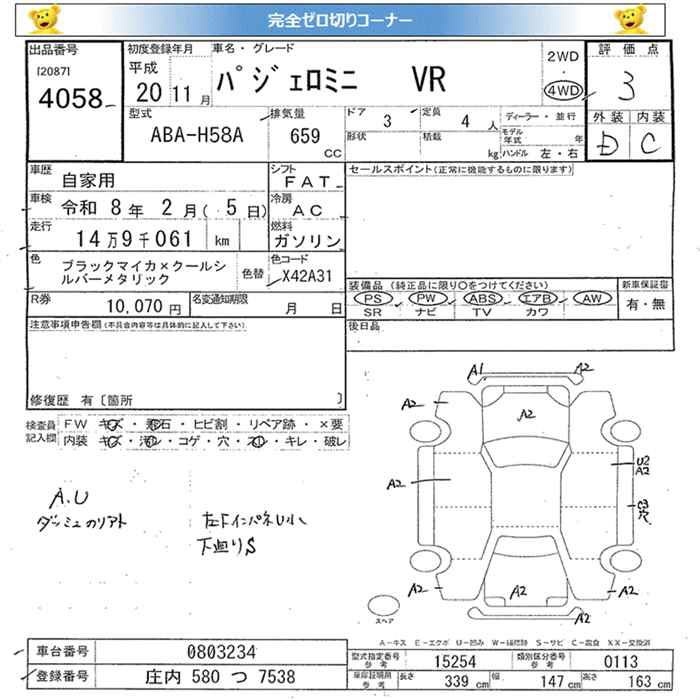 完全ゼロ切りコーナー
出品番号
[2087]
4058
初度登録年月
平成
20 11月
車名・グレード
パジェロミニ VR
2WD
・
4WD
評価点
3
外装 内装
D C
型式
ABA-H58A
排気量
659
CC
ドア
3
定員
4 人
形状
積載
kg
ディーラー・並行
モデル年式 年
ハンドル 左・右
車歴
自家用
シフト
FAT
車検
令和 8年 2月( 5日)
冷房
AC
走行
14万9千061 km
燃料
ガソリン
色
ブラックマイカ×クールシルバーメタリック
色替
色コード
X42A31
R券
10,070円
名変通知期限
月 日
セールスポイント(正常に機能するものに限ります)
装備品(純正品に限り〇をつけてください)
PS PW ABS エアB AW
SR ナビ TV カワ
新車保証書
有・無
後日品
注意事項申告欄(不具合内容等は具体的に記入して下さい)
修復歴 有〔箇所 〕
検査員記入欄
FW キズ・飛石・ヒビ割・リペア跡・×要
内装 キズ・汚レ・コゲ・穴・スレ・キレ・破レ
A.U
ダッシュのリアト
左Fインパネ U小
下廻りS
A1
A2
A2
A2
A2
A2
U2
A2
C3
穴
A2
A2
A2
スペア
A-キズ E-エクボ U-凹み W-補修跡 S-サビ C-腐食 XX-交換済
車台番号
0803234
登録番号
庄内 580 つ 7538
型式指定番号
参考
15254
類別区分番号
参考
0113
車庫証明用
参考
長さ
339 cm
幅
147 cm
高さ
163 cm